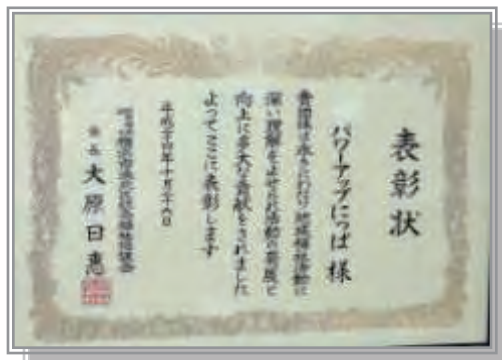 表彰状
パワーアップにっぱ 様
貴団体は永きにわたり地域福祉活動に
深い理解をよせられ活動の発展と
向上に多大な貢献をされました
よってここに表彰します
平成二十四年十月二十八日
会長 大原日恵